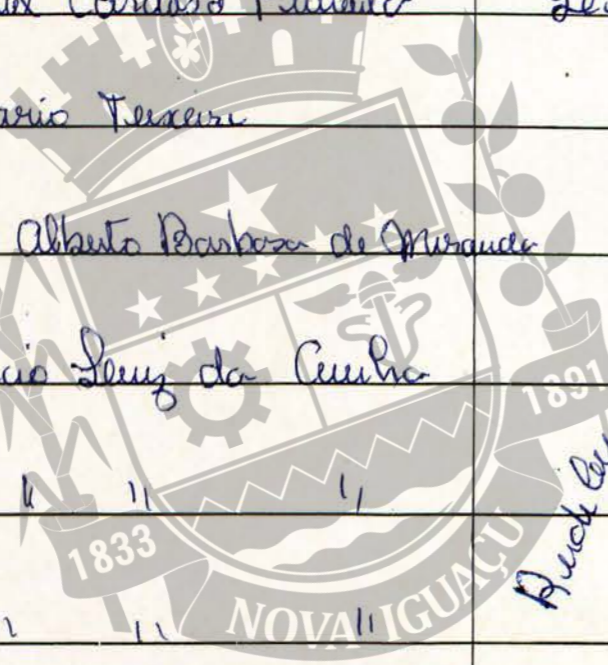 Cardoso
ario Teixeira
Alberto Barbosa de Miranda
cio Luiz da Cunha
1891
" " "
1833
" "
NOVA IGUAÇU